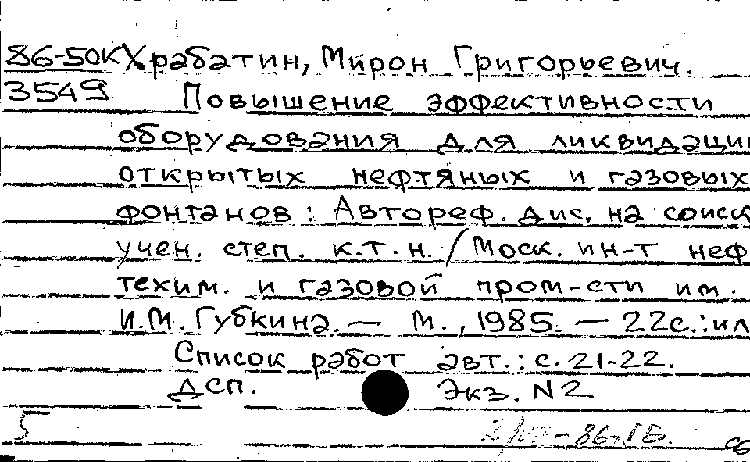 86-50К Храбатин, Мирон Григорьевич.
3549 Повышение эффективности
оборудования для ликвидации
открытых нефтяных и газовых
фонтанов: Автореф. дис. на соиск
учен. степ. к.т.н. / Моск. ин-т неф
техим. и газовой пром-сти им.
И.М. Губкина. — М., 1985. — 22с.: ил
Список работ авт.: с. 21-22.
ДСП. Экз. N2
5